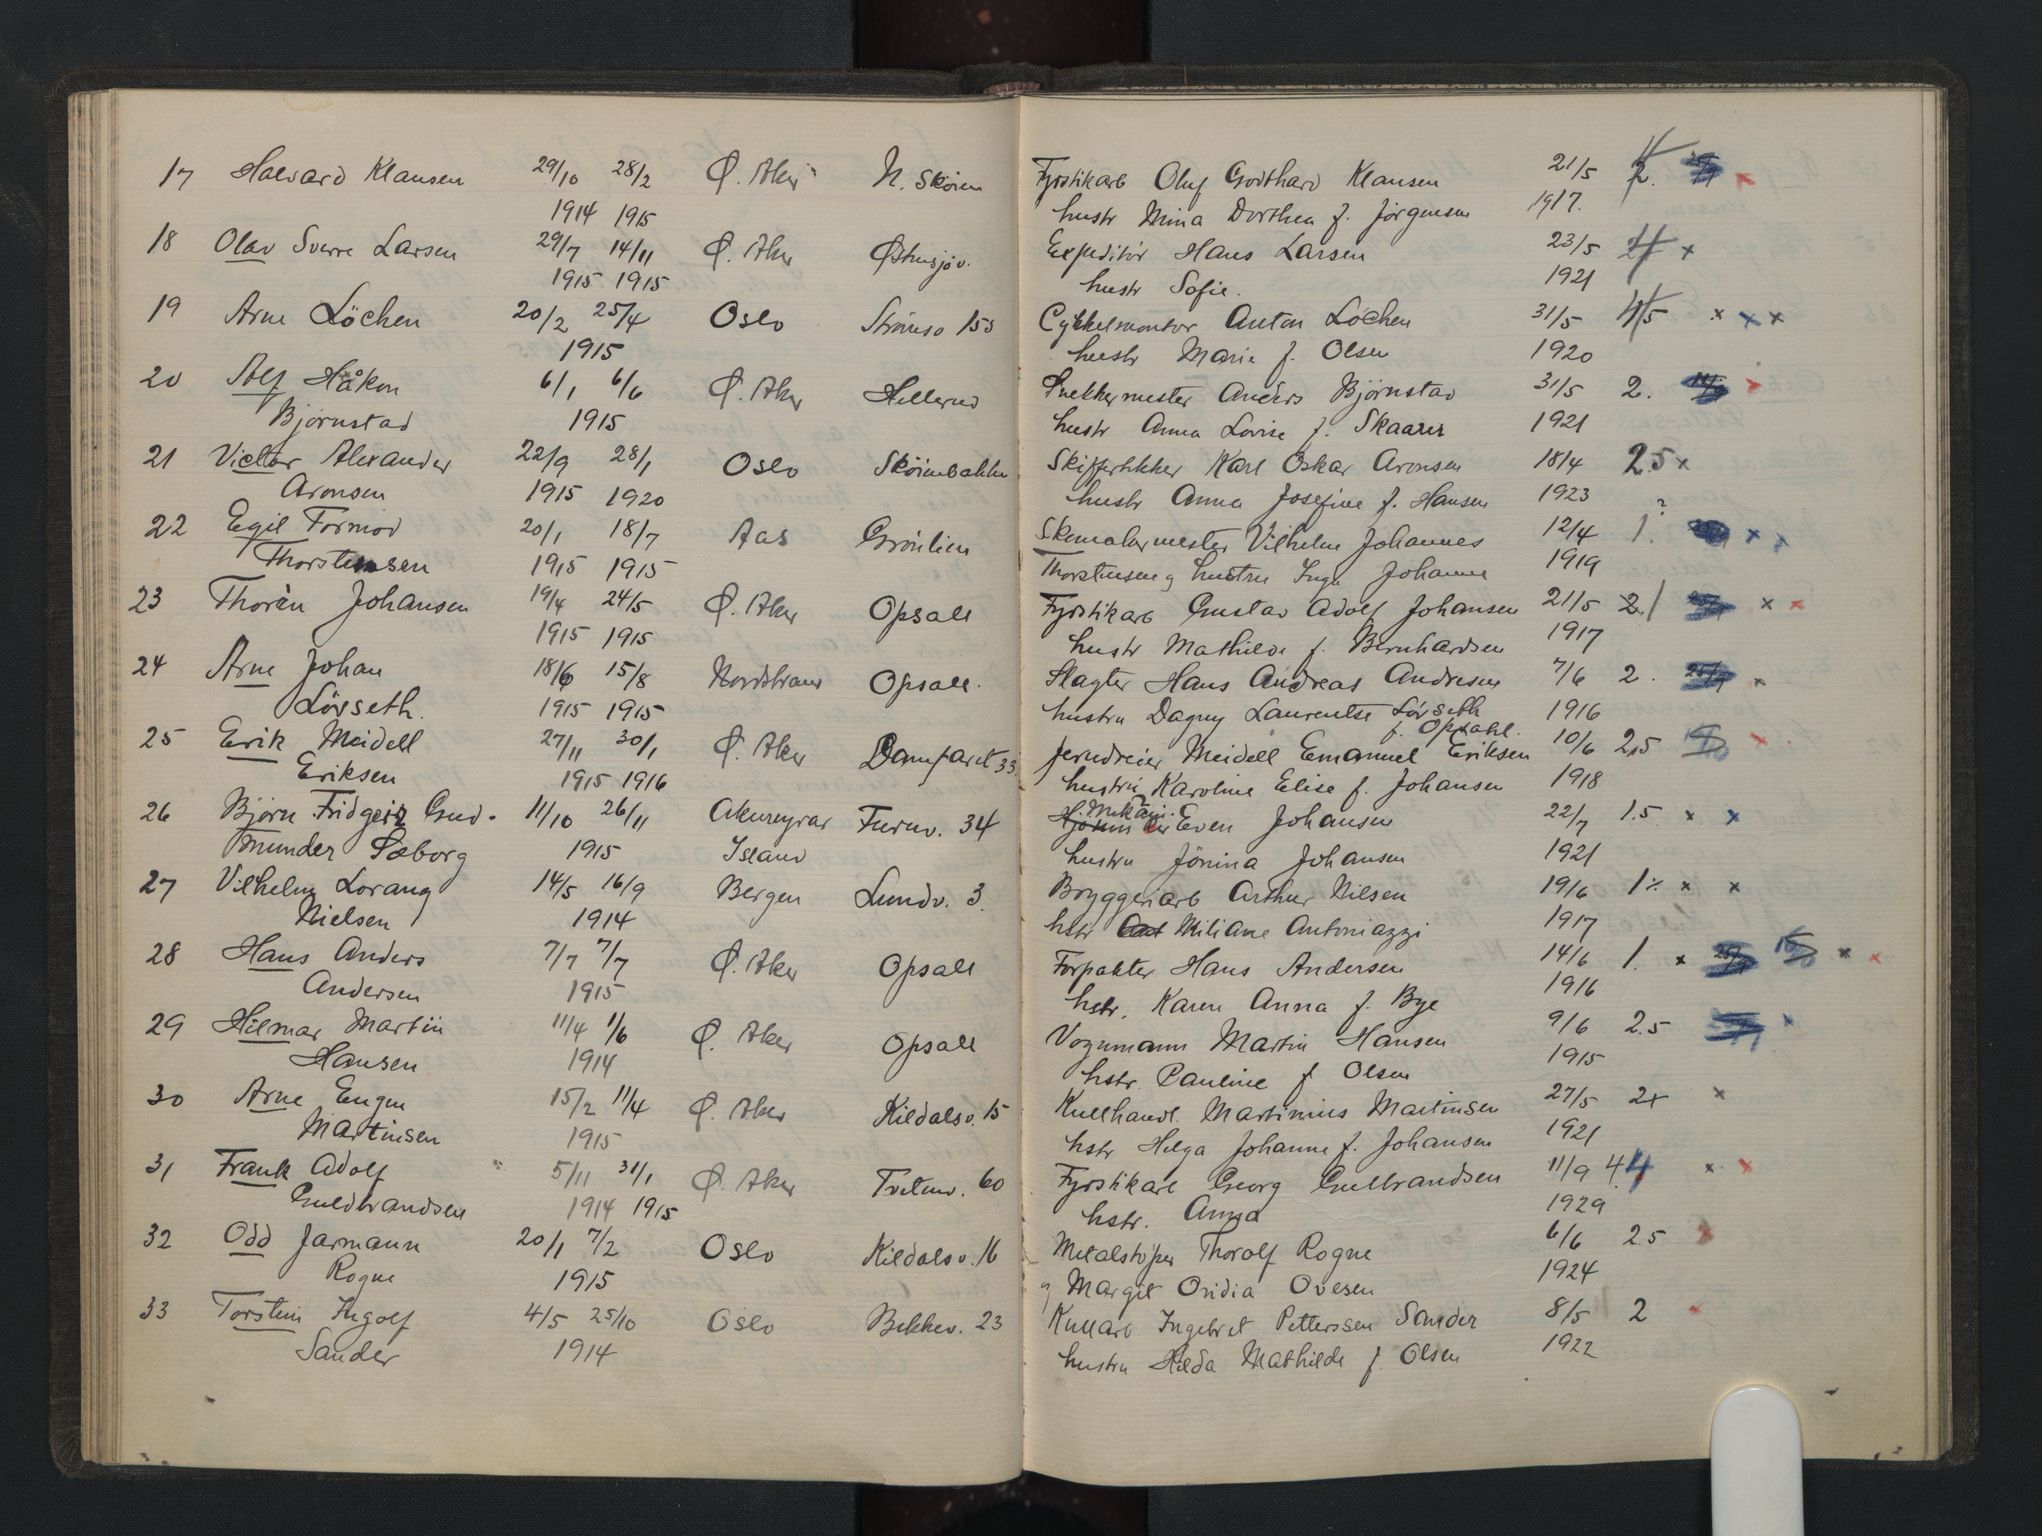 17 Halvard Klausen 29/10 28/2 Ø. Aker N. Skøien Fyrstikarb Oluf Godthard Klausen 21/5 2.
1914 1915 hustr Mina Dorthea f. Jørgensen 1917.
18 Olav Sverre Larsen 29/7 14/11 Ø. Aker Østensjøv. Expeditør Hans Larsen 23/5 4 x
1915 1915 hustr Sofie. 1921
19 Arne Löchen 20/2 25/4 Oslo Strømsv 155 Cykkelmontør Anton Löchen 31/5 4/5 x x x
1915 hustr Marie f. Olsen 1920
20 Alf Håkon 6/1 6/6 Ø. Aker Hellerud Snekkermester Anders Bjørnstad 31/5 2. x
Bjørnstad 1915 hustr Anna Lovise f. Skaarer 1921
21 Victor Alexander 22/9 28/1 Oslo Skøienbakken Skiffertekker Karl Oskar Aronsen 18/4 2.5 x
Aronsen 1915 1920 hustr Anna Josefine f. Hansen 1923
22 Egil Tormod 20/1 18/7 Aas Grønlien Skomakermester Vilhelm Johannes 12/4 1. ? x x
Thorstensen 1915 1915 Thorstensen og hustru Inga Johanne 1919
23 Thorèn Johansen 19/4 24/5 Ø. Aker Opsall Fyrstikarb Gustav Adolf Johansen 21/5 2.1 x x
1915 1915 hustr Mathilde f. Bernhardsen 1917
24 Arne Johan 18/6 15/8 Nordstrand Opsall. Slagter Hans Andreas Andresen 7/6 2. x
Lörseth. 1915 1915 hustru Dagny Laurentse Lörseth 1916
f. Opsahl.
25 Erik Meidell 27/11 30/1 Ø. Aker Dampfaret 33 Jerndreier Meidell Emanuel Eriksen 10/6 2.5 x
Eriksen 1915 1916 hustru Karoline Elise f. Johansen 1918
26 Bjørn Fridgeir Gud- 11/10 26/11 Akureyrar Furuv. 34 Even Johansen 22/7 1.5 x x
munder Söborg 1915 Island hustru Jónina Johansen 1921
27 Vilhelm Lorang 14/5 16/9 Bergen Lundv. 3. Bryggeriarb Arthur Nilsen 19/6 1 x x
Nielsen 1914 hstr Miliane Antoniazzi 1917
28 Hans Anders 7/7 7/7 Ø. Aker Opsall Forpakter Hans Andersen 14/6 1. x x x
Andersen 1915 hstr. Karen Anna f. Bye 1916
29 Hilmar Martin 11/4 1/6 Ø. Aker Opsall Vognmann Martin Hansen 9/6 2.5 x
Hansen 1914 hstr. Pauline f Olsen 1915
30 Arne Eugen 15/2 11/4 Ø. Aker Kildalsv. 15 Kullhandl. Martinius Martinsen 27/5 2x x
Martinsen 1915 hstr Helga Johanne f. Johansen 1921
31 Frank Adolf 5/11 31/1 Ø. Aker Tvetenv. 60 Fyrstikarb Georg Gulbrandsen 11/9 4.4 x x
Guldbrandsen 1914 1915 hstr. Anna 1929
32 Odd Jarmann 20/1 7/2 Oslo Kildalsv. 16 Metalstøper Thoralf Rogne 6/6 2.5 x
Rogne 1915 og Margit Ovidia Ovesen 1924
33 Torstein Ingolf 4/5 25/10 Oslo Bekkev. 23 Kullarb Ingebret Petterssen Sander 8/5 2 x
Sander 1914 hustru Hilda Mathilde f. Olsen 1922